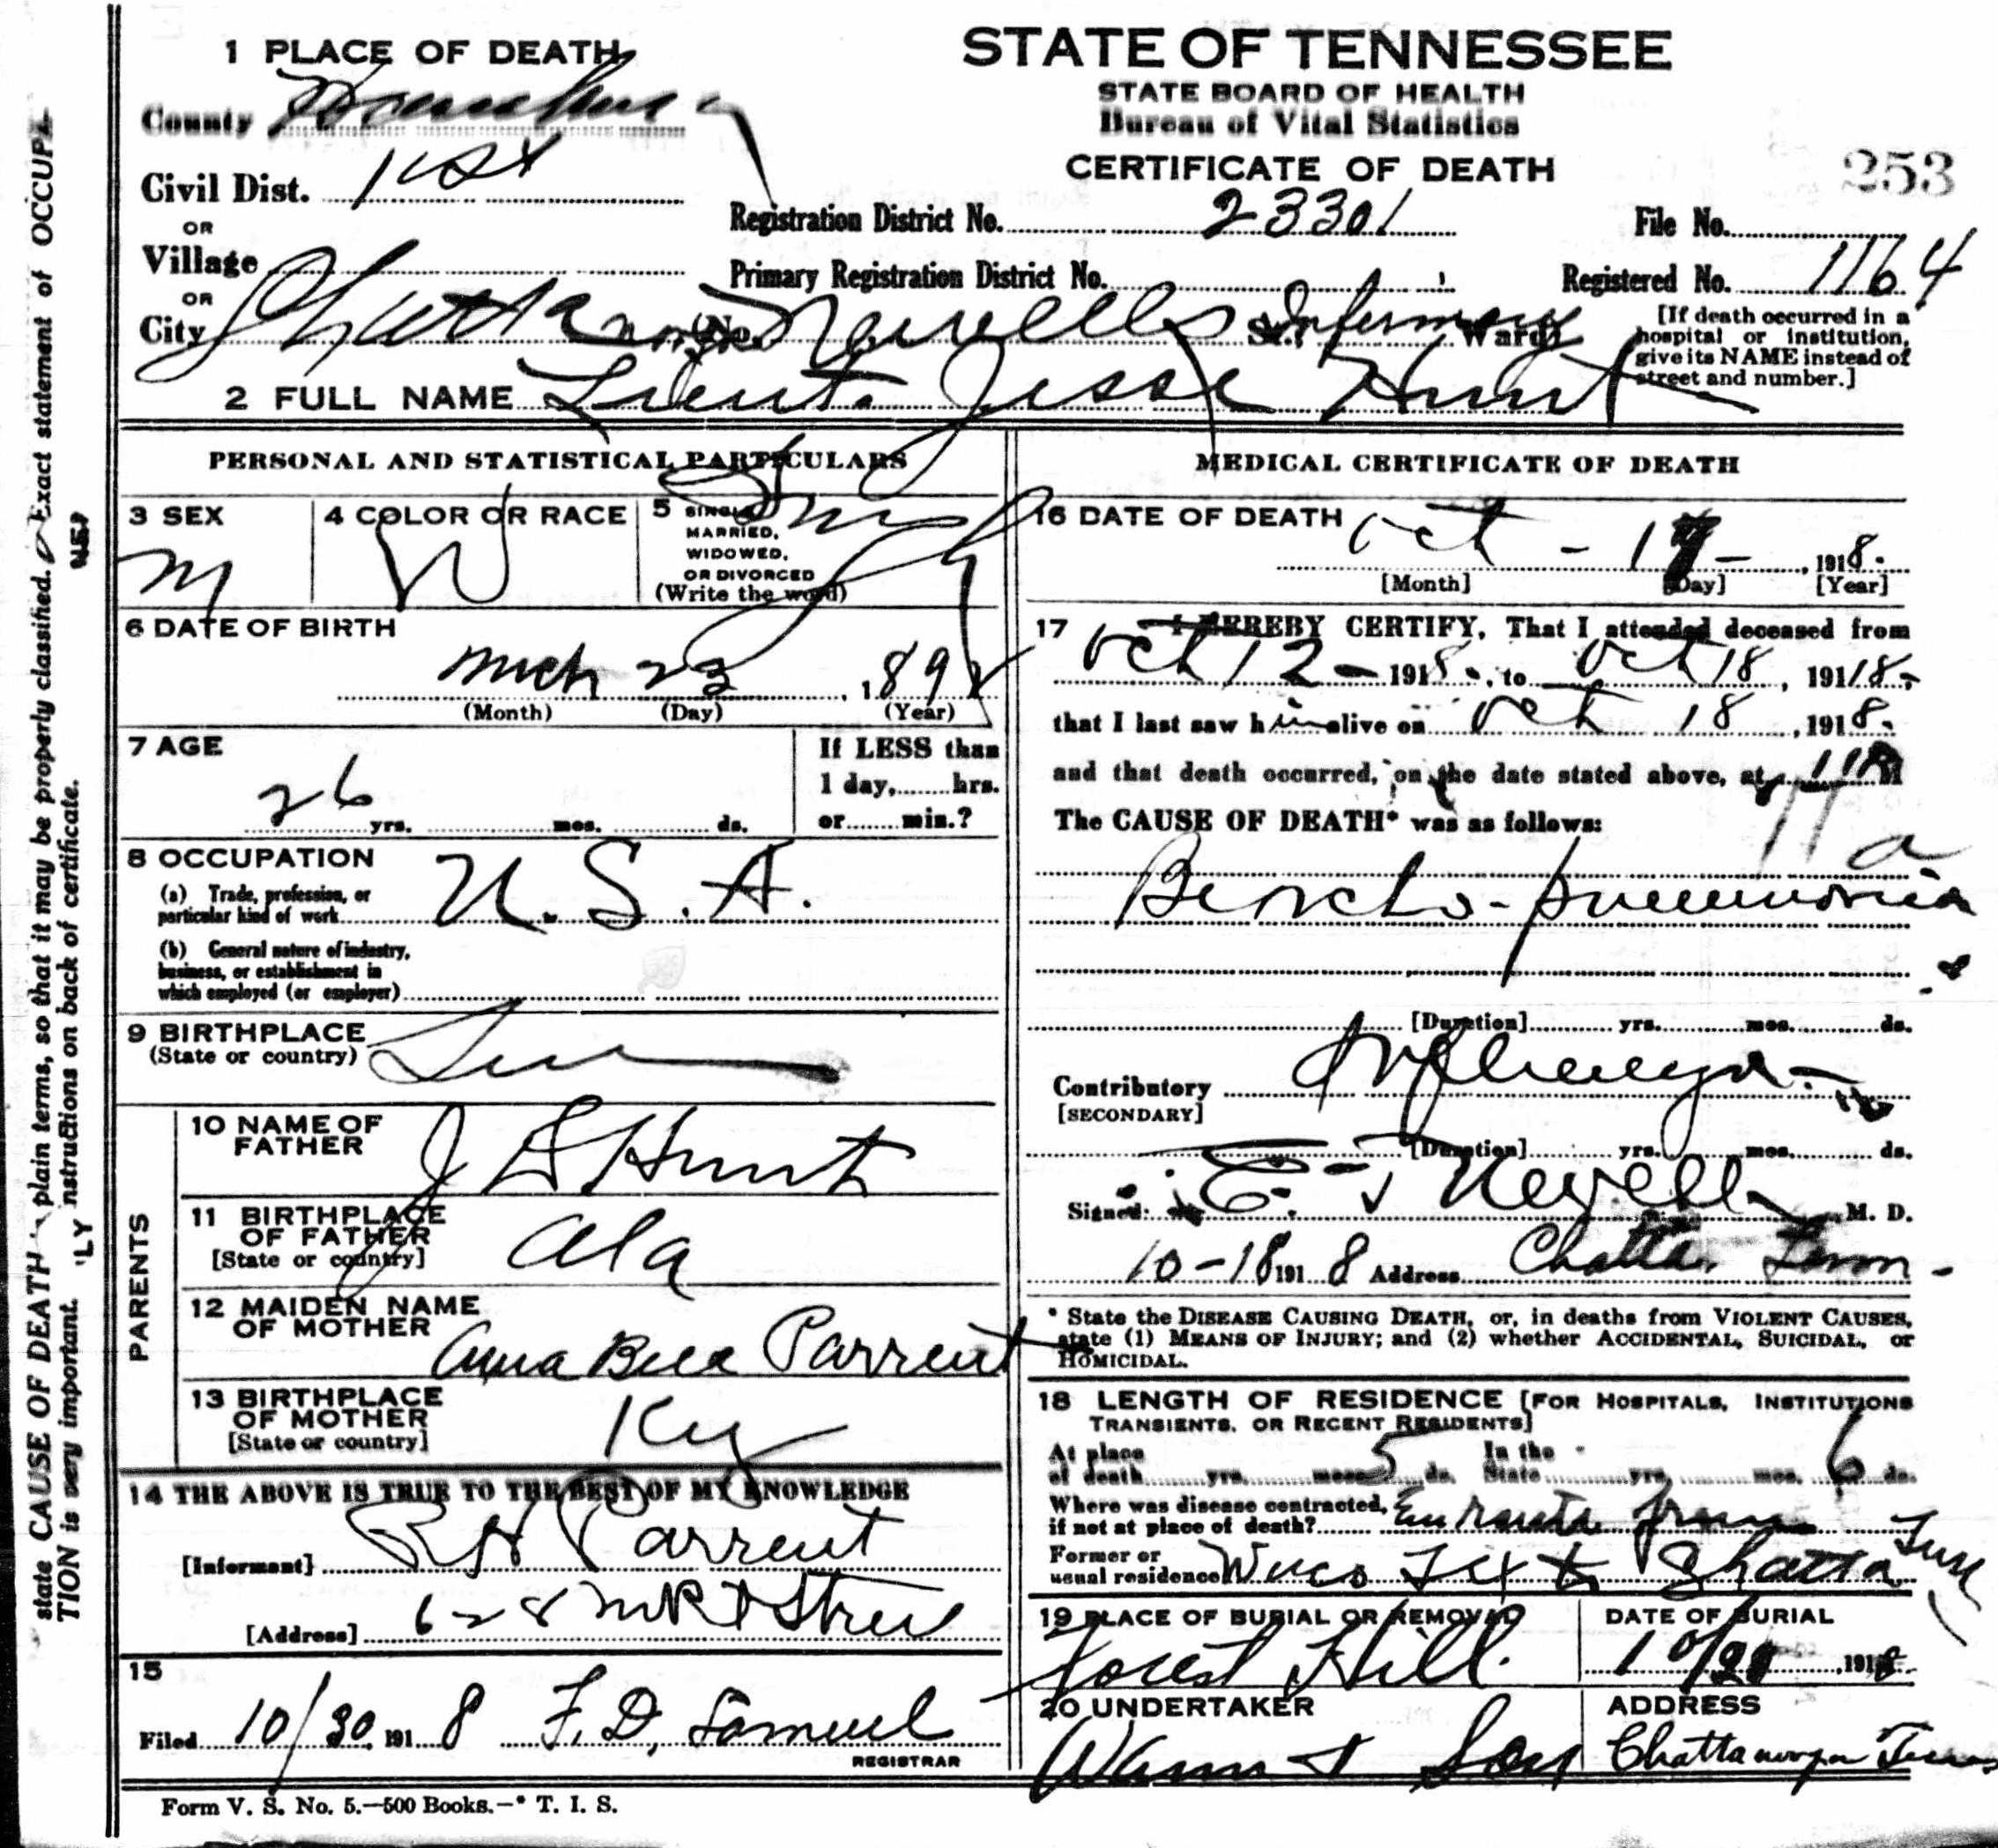 1 PLACE OF DEATH
County
Civil Dist. 1st
OR
Village
OR
City Chattanooga (No. Newells St.; Infirmary Ward)
STATE OF TENNESSEE
STATE BOARD OF HEALTH
Bureau of Vital Statistics
CERTIFICATE OF DEATH
253
Registration District No. 23301
File No.
Primary Registration District No.
Registered No. 1164
[If death occurred in a
hospital or institution,
give its NAME instead of
street and number.]
2 FULL NAME Lieut. Jesse Hunt
PERSONAL AND STATISTICAL PARTICULARS
3 SEX
M
4 COLOR OR RACE
W
5 SINGLE,
MARRIED,
WIDOWED,
OR DIVORCED
(Write the word)
Single
6 DATE OF BIRTH
Mch 23, 189
(Month) (Day) (Year)
7 AGE
26 yrs. mos. ds.
If LESS than
1 day, hrs.
or min.?
8 OCCUPATION
(a) Trade, profession, or
particular kind of work U.S.A.
(b) General nature of industry,
business, or establishment in
which employed (or employer)
9 BIRTHPLACE
(State or country) Tenn
PARENTS
10 NAME OF
FATHER J S Hunt
11 BIRTHPLACE
OF FATHER
[State or country] Ala
12 MAIDEN NAME
OF MOTHER Anna Bell Parrent
13 BIRTHPLACE
OF MOTHER
[State or country] Ky
14 THE ABOVE IS TRUE TO THE BEST OF MY KNOWLEDGE
[Informant] R H Parrent
[Address] 628 MKt Street
15
Filed 10/30, 1918 F. D. Samuel
REGISTRAR
Form V. S. No. 5.—500 Books.—* T. I. S.
MEDICAL CERTIFICATE OF DEATH
16 DATE OF DEATH
Oct - 1 - , 1918.
[Month] [Day] [Year]
17 I HEREBY CERTIFY, That I attended deceased from
Oct 12 - 1918., to Oct 18, 19118,
that I last saw him alive on Oct 18, 1918.
and that death occurred, on the date stated above, at 11P M
The CAUSE OF DEATH* was as follows:
11 a
Broncho-pneumonia
[Duration] yrs. mos. ds.
Contributory Influenza
[SECONDARY]
[Duration] yrs. mos. ds.
Signed: E. T Newell M. D.
10-18 1918 Address Chatta. Tenn.
* State the DISEASE CAUSING DEATH, or, in deaths from VIOLENT CAUSES,
state (1) MEANS OF INJURY; and (2) whether ACCIDENTAL, SUICIDAL, or
HOMICIDAL.
18 LENGTH OF RESIDENCE [FOR HOSPITALS, INSTITUTIONS
TRANSIENTS, OR RECENT RESIDENTS]
At place In the
of death yrs. mos. 5 ds. State yrs. mos. 6 ds.
Where was disease contracted,
if not at place of death? En route from
Former or
usual residence Waco Tex to Chatta Tenn
19 PLACE OF BURIAL OR REMOVAL
Forest Hill.
DATE OF BURIAL
10/20 1918
20 UNDERTAKER
Wann & Son
ADDRESS
Chattanooga Tenn
state CAUSE OF DEATH plain terms, so that it may be properly classified. Exact statement of OCCUPA-
TION is very important. nstructions on back of certificate.